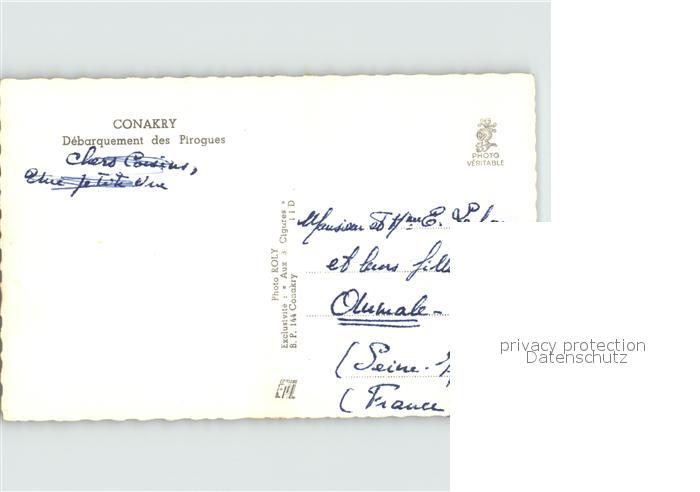 CONAKRY
Débarquement des Pirogues
Chers Cousins,
Une petite vue
PHOTO
VÉRITABLE
Photo ROLY
Exclusivité : « Aux 3 Cigures »
B. P. 144 Conakry 11 D
Monsieur et Mme E.
et leurs fille
Aumale -
(Seine-
(France
privacy protection
Datenschutz